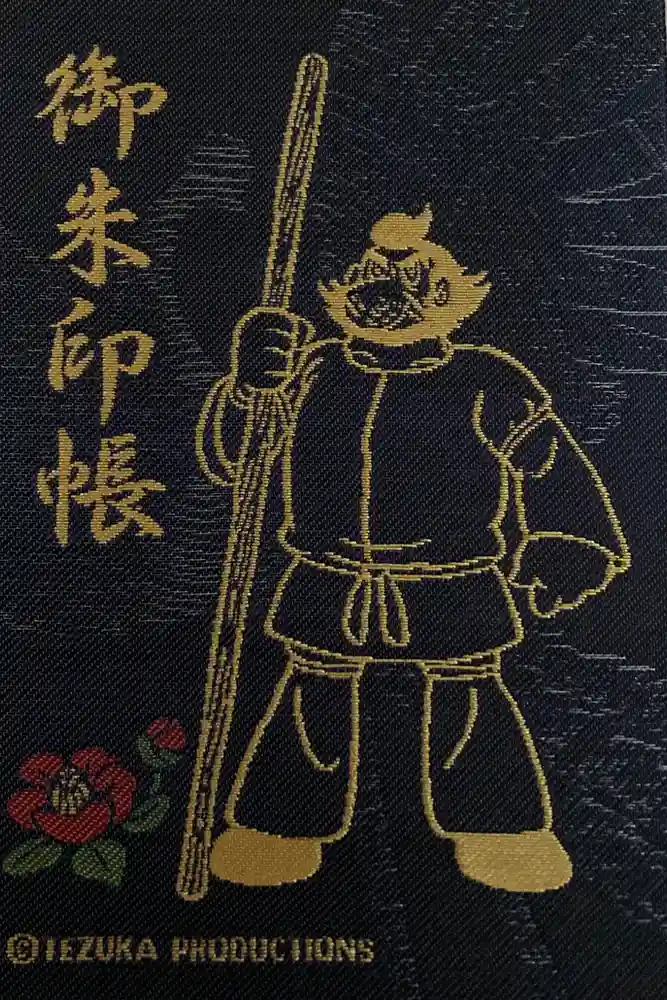 御朱印帳
©TEZUKA PRODUCTIONS